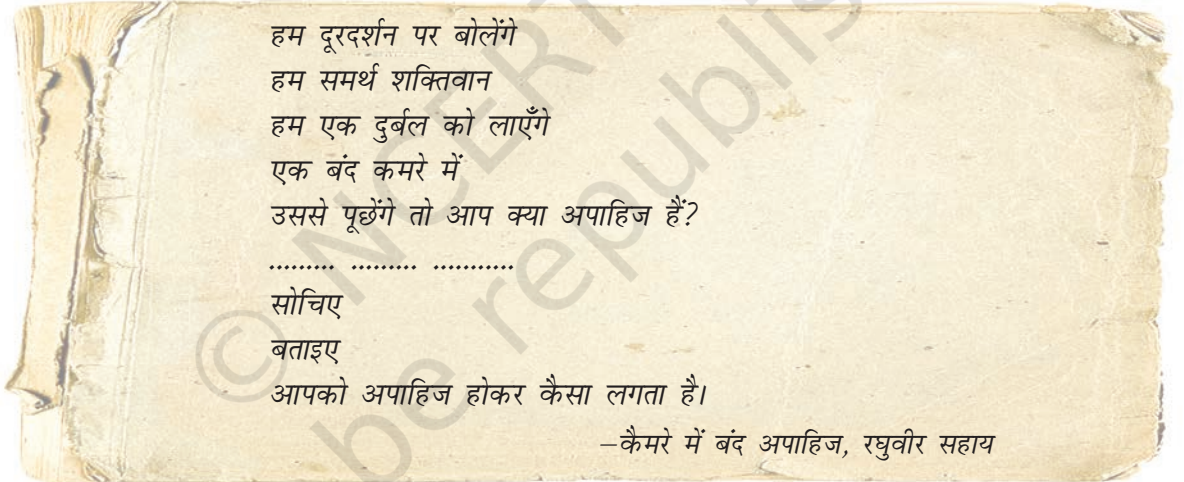 हम दूरदर्शन पर बोलेंगे
हम समर्थ शक्तिवान
हम एक दुर्बल को लाएँगे
एक बंद कमरे में
उससे पूछेंगे तो आप क्या अपाहिज हैं?
......... ......... ...........
सोचिए
बताइए
आपको अपाहिज होकर कैसा लगता है।
–कैमरे में बंद अपाहिज, रघुवीर सहाय
© NCERT
be republis